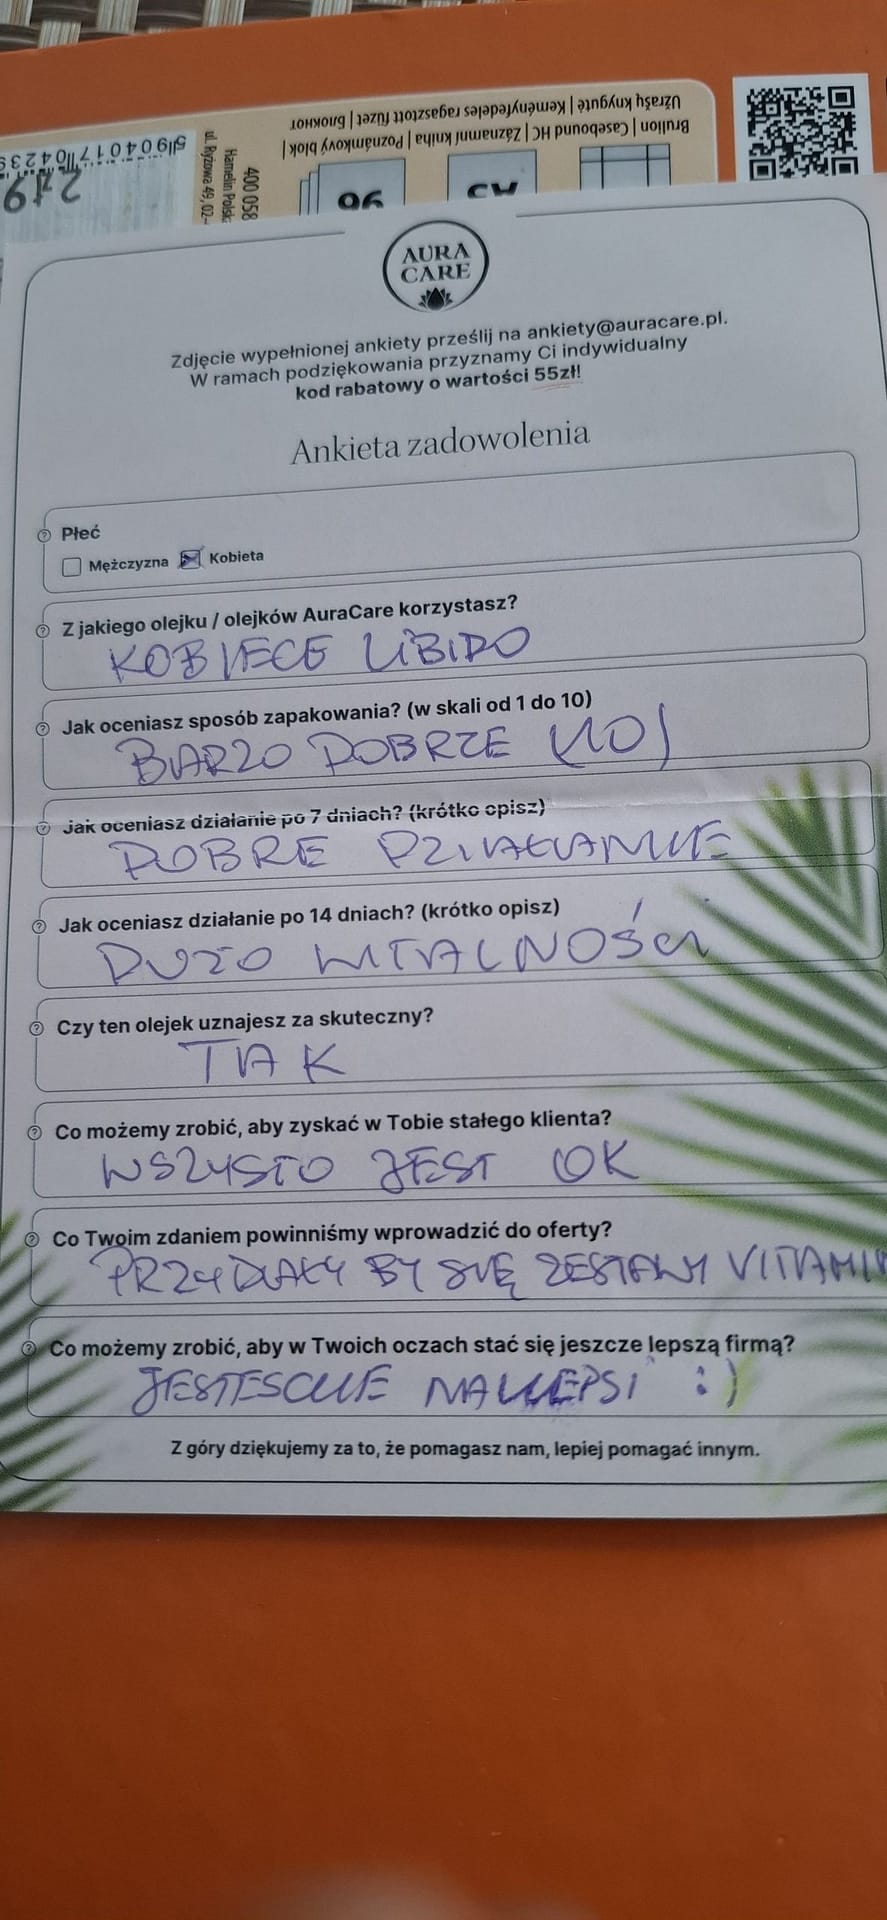 Užrašų knygutė | Keményfedeles ragasztott füzet | Блокнот
Brulion | Casebound HC | Záznamní kniha | Poznámkový blok |
96
A5
400 058
Hamelin Polska
ul. Ryżowa 49, 02-
AURA
CARE
Zdjęcie wypełnionej ankiety prześlij na ankiety@auracare.pl.
W ramach podziękowania przyznamy Ci indywidualny
kod rabatowy o wartości 55zł!
Ankieta zadowolenia
Płeć
Mężczyzna Kobieta
Z jakiego olejku / olejków AuraCare korzystasz?
KOBIECE LIBIDO
Jak oceniasz sposób zapakowania? (w skali od 1 do 10)
BARZO DOBRZE (10)
Jak oceniasz działanie po 7 dniach? (krótko opisz)
DOBRE DZIAŁANIE
Jak oceniasz działanie po 14 dniach? (krótko opisz)
DUŻO WITALNOŚCI
Czy ten olejek uznajesz za skuteczny?
TAK
Co możemy zrobić, aby zyskać w Tobie stałego klienta?
WSZYSTO JEST OK
Co Twoim zdaniem powinniśmy wprowadzić do oferty?
PRZYDAŁY BY SIĘ ZESTAWY VITAMIN
Co możemy zrobić, aby w Twoich oczach stać się jeszcze lepszą firmą?
JESTESCIE NAJLEPSI :)
Z góry dziękujemy za to, że pomagasz nam, lepiej pomagać innym.